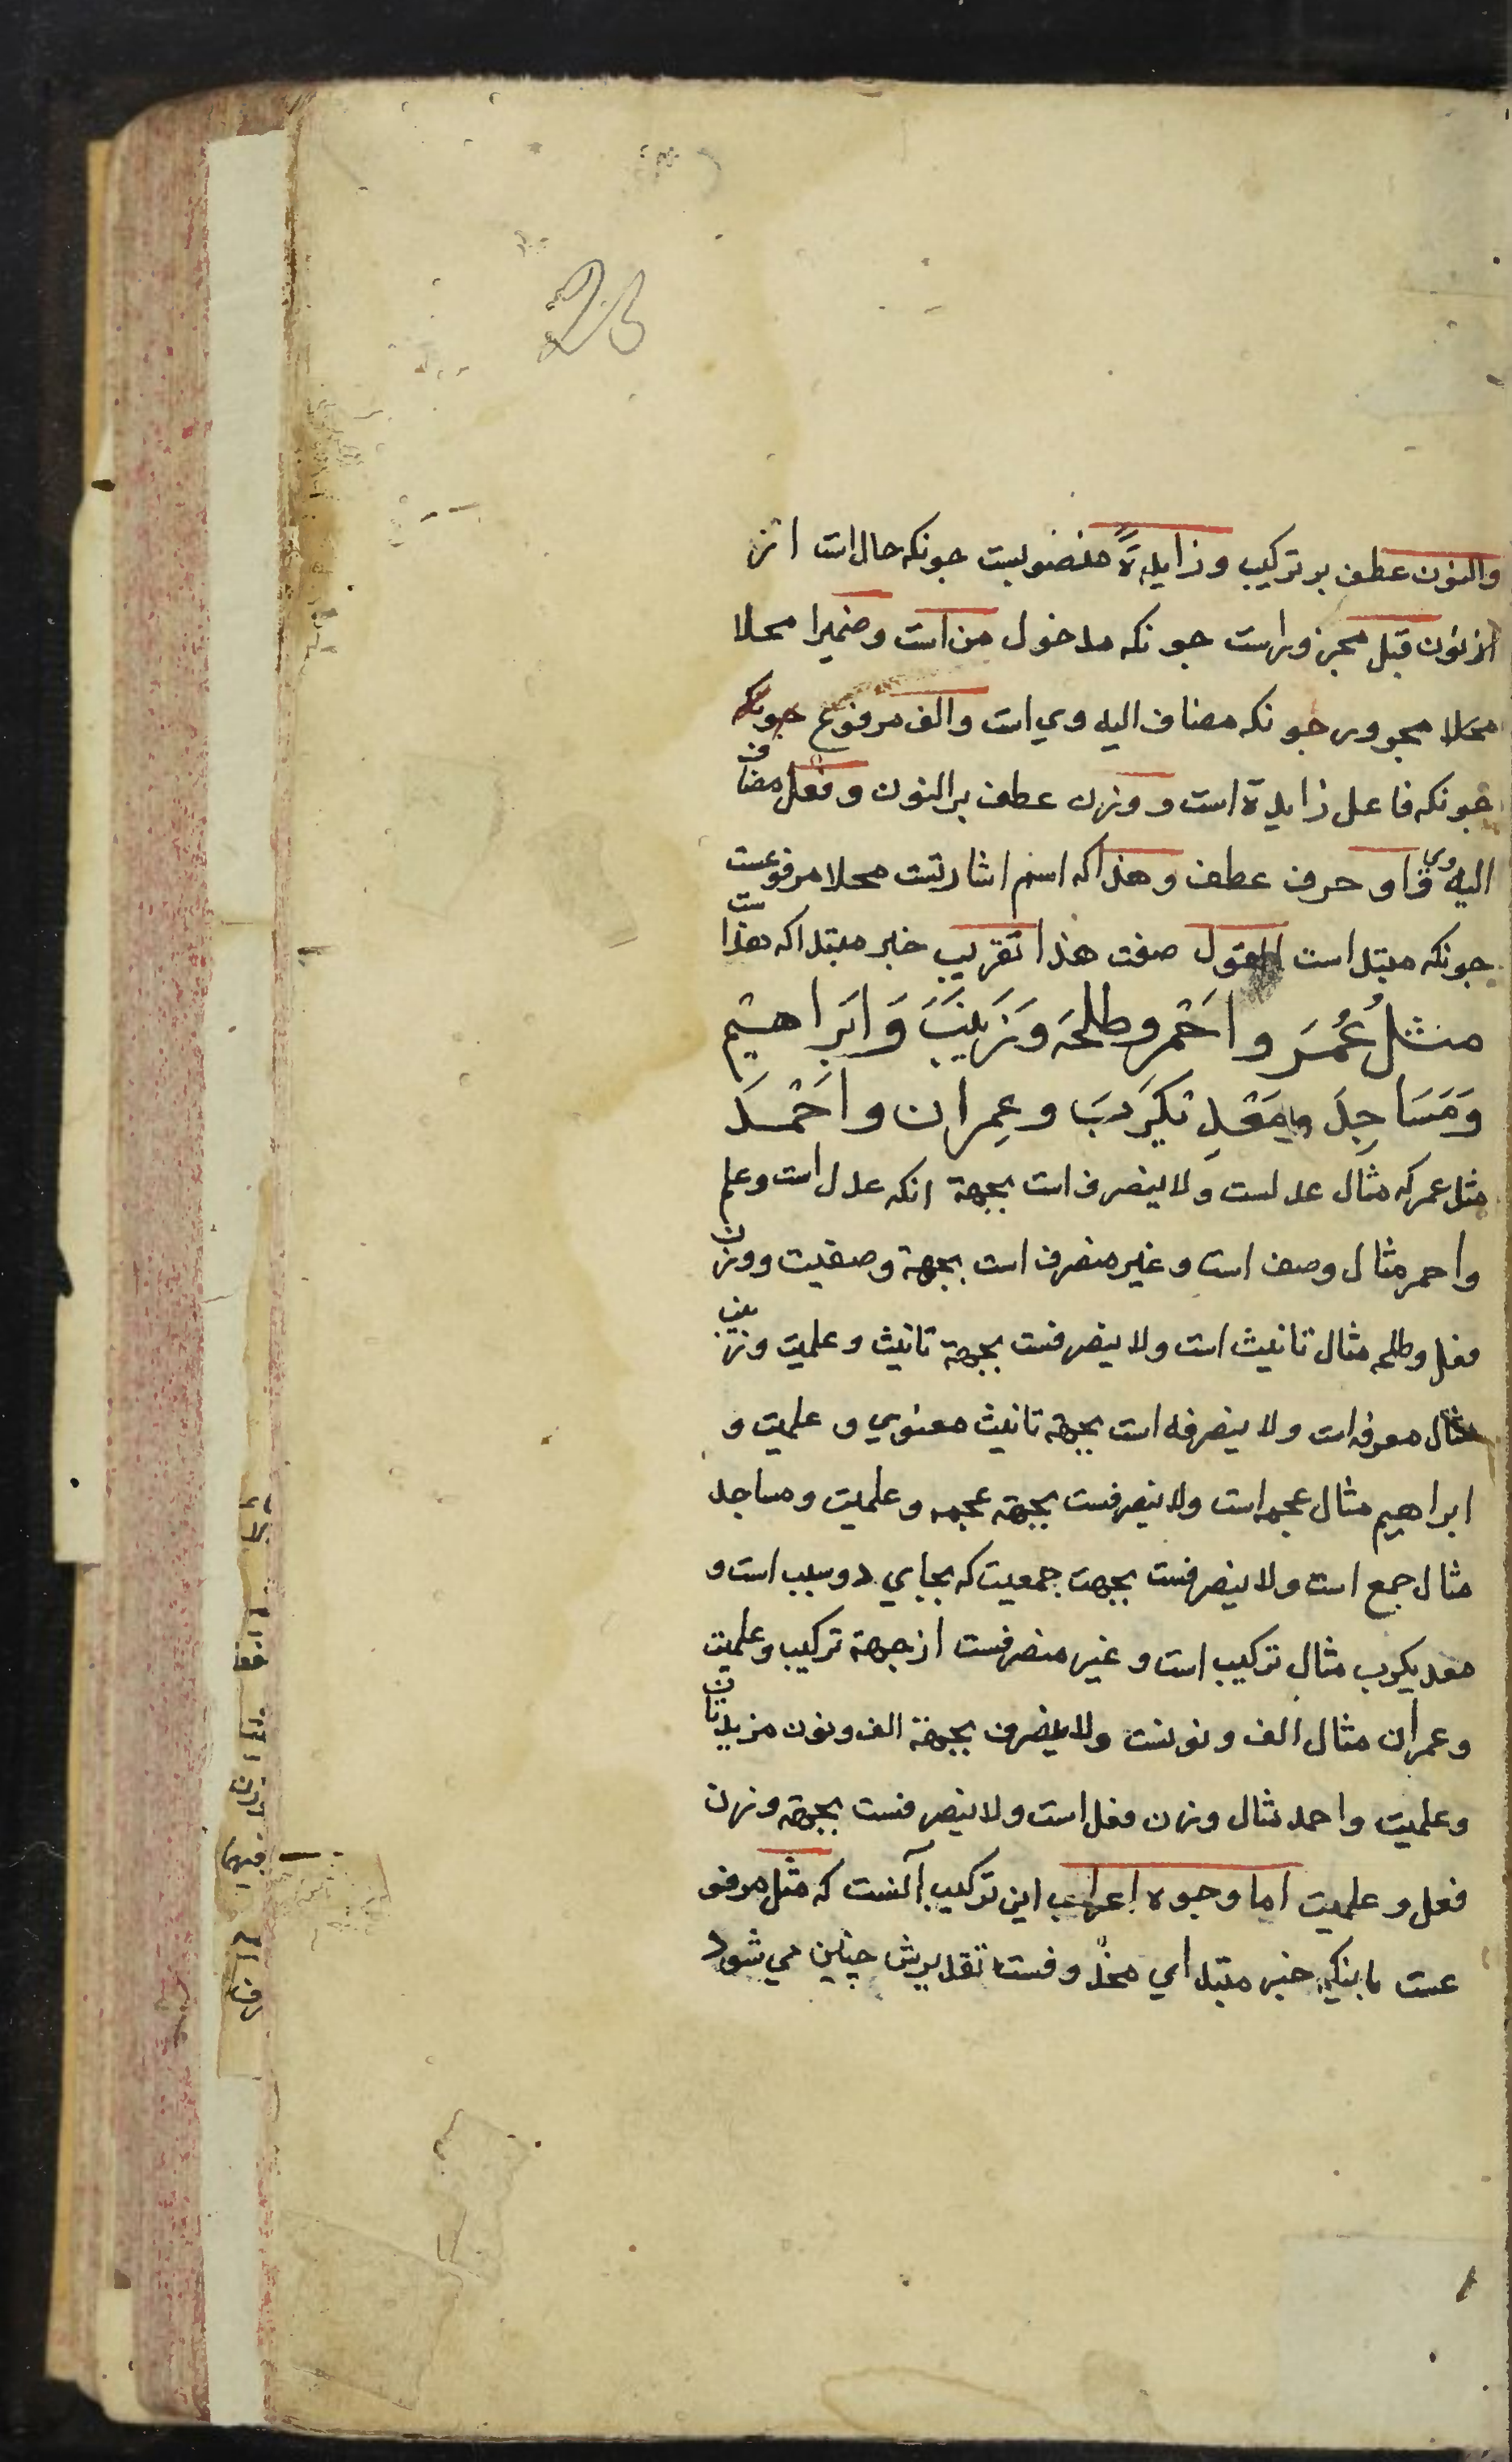 26
والنون عطف بر ترکیب و زایدةً منصوبست جونکه حال است از
از نون قبل مجرور است جونکه مدخول من است و ضمیرا محلا
محلا مجرور جونکه مضاف الیه وی است و الف مرفوع جونکه
جونکه فاعل زایدة است و وزن عطف بر النون و فعل مضاف
الیه وی واو حرف عطف و هذا که اسم اشارتست محلا مرفوعست
جونکه مبتداست القول صفت هذا تقریب خبر مبتدا که هذاست
مثلُ عُمَرَ واَحْمر وطلحَة وَزَینَبَ وَاِبْرَاهیم
وَمَسَاجِدَ ومَعْدِیکَرَبَ وعِمران واَحْمَدَ
مثل عمر که مثال عدلست و لاینصرف است بجهة انکه عدل است و علم
واحمر مثال وصف است و غیر منصرف است بجهة وصفیت و وزن
فعل و طلحه مثال تانیث است و لاینصرفست بجهة تانیث و علمیت و زینب
مثال معرفه است و لاینصرفه است بجهة تانیث معنوي و علمیت و
ابراهیم مثال عجمه است و لاینصرفست بجهة عجمه و علمیت و مساجد
مثال جمع است و لاینصرفست بجهت جمعیت که بجاي دو سبب است و
معدیکرب مثال ترکیب است و غیر منصرفست از جهة ترکیب و علمیت
و عمران مثال الف و نونست و لاینصرف بجهة الف و نون مزیدتان
و علمیت واحمد مثال وزن فعل است و لاینصرفست بجهة وزن
فعل و علمیت اما وجوه اعراب این ترکیب آنست که مثل مرفو
عست باینکه خبر مبتداي محذوفست تقدیرش چنین می شود